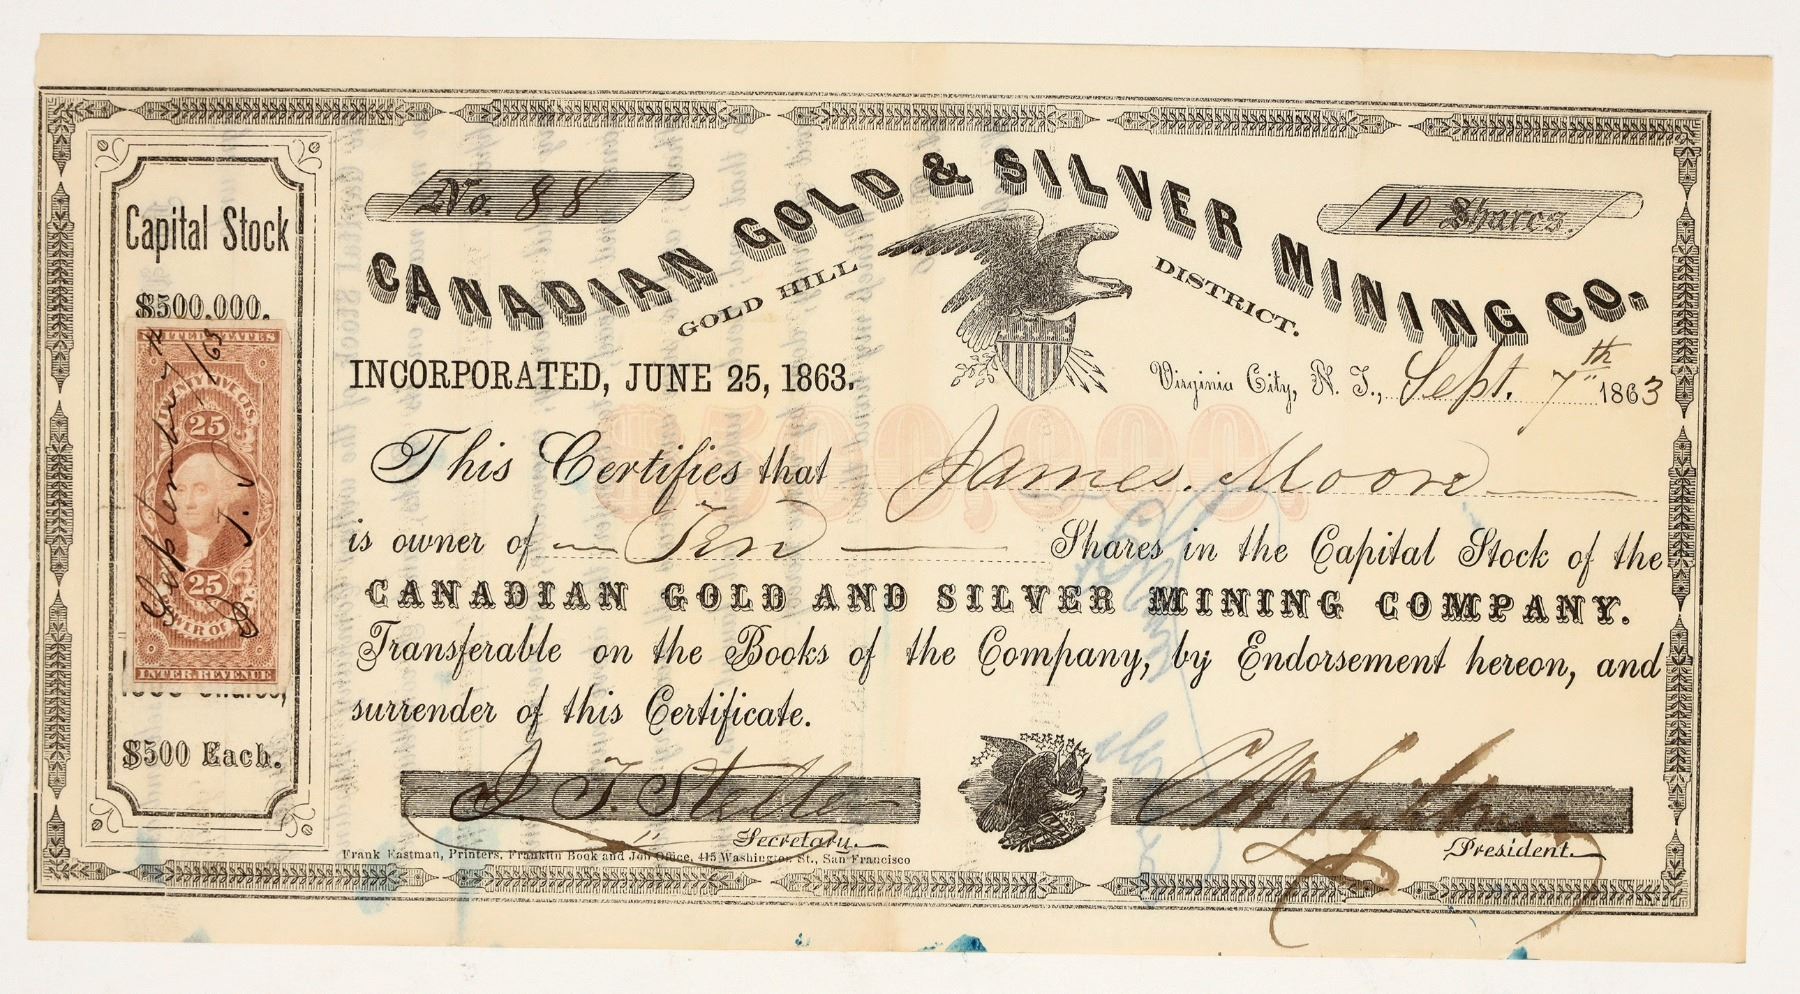 No. 88
CANADIAN GOLD & SILVER MINING CO.
10 Shares.
GOLD HILL DISTRICT.
INCORPORATED, JUNE 25, 1863.
Virginia City, N. T., Sept. 7th 1863
$500,000.
This Certifies that James. Moore
is owner of Ten Shares in the Capital Stock of the
CANADIAN GOLD AND SILVER MINING COMPANY.
Transferable on the Books of the Company, by Endorsement hereon, and
surrender of this Certificate.
Secretary.
President.
Frank Eastman, Printers, Franklin Book and Job Office, 415 Washington St., San Francisco
Capital Stock
$500,000.
UNITED STATES
TWENTY FIVE CTS.
25
25
INTER. REVENUE
September 7th /63
Shares,
$500 Each.